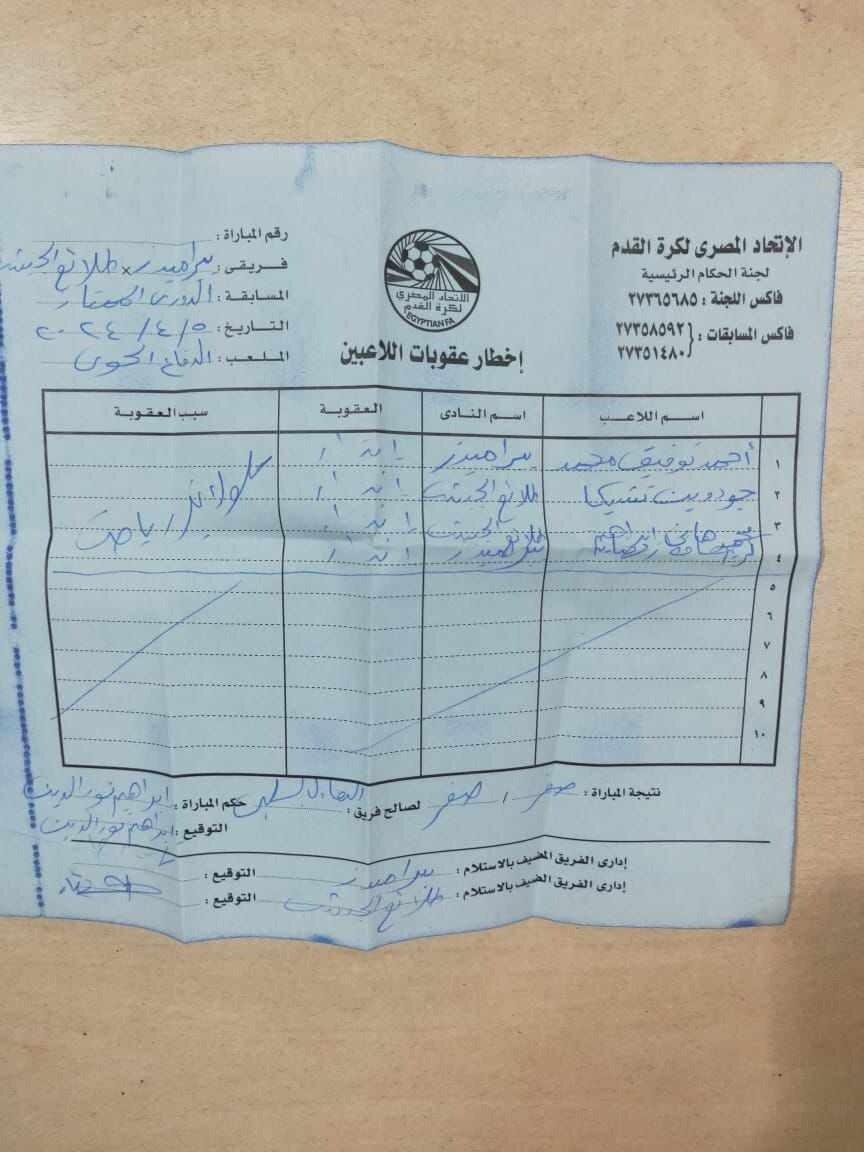 الإتحاد المصرى لكرة القدم
لجنة الحكام الرئيسية
فاكس اللجنة : ٢٧٣٦٥٦٨٥
فاكس المسابقات : ٢٧٣٥٨٥٩٢
٢٧٣٥١٤٨٠
الاتحاد المصري
لكرة القدم
EGYPTIAN FA
إخطار عقوبات اللاعبين
رقم المباراة :
فريقى : بيراميدز × طلائع الجيش
المسابقة : الدورى الممتاز
التاريخ : ٥/٤/٢٠٢٤
الملعب : الدفاع الجوى
اسم اللاعب اسم النادى العقوبة سبب العقوبة
١ أحمد توفيق محمد بيراميدز إنذار سلوك غير رياضى
٢ جودوين تشيكا طلائع الجيش إنذار
٣ طلائع الجيش إنذار
٤ إنذار
٥
٦
٧
٨
٩
١٠
نتيجة المباراة : صفر / صفر لصالح فريق : التعادل السلبى حكم المباراة : ابراهيم نور الدين
التوقيع : ابراهيم نور الدين
إدارى الفريق المضيف بالاستلام : بيراميدز التوقيع :
إدارى الفريق الضيف بالاستلام : طلائع الجيش التوقيع :